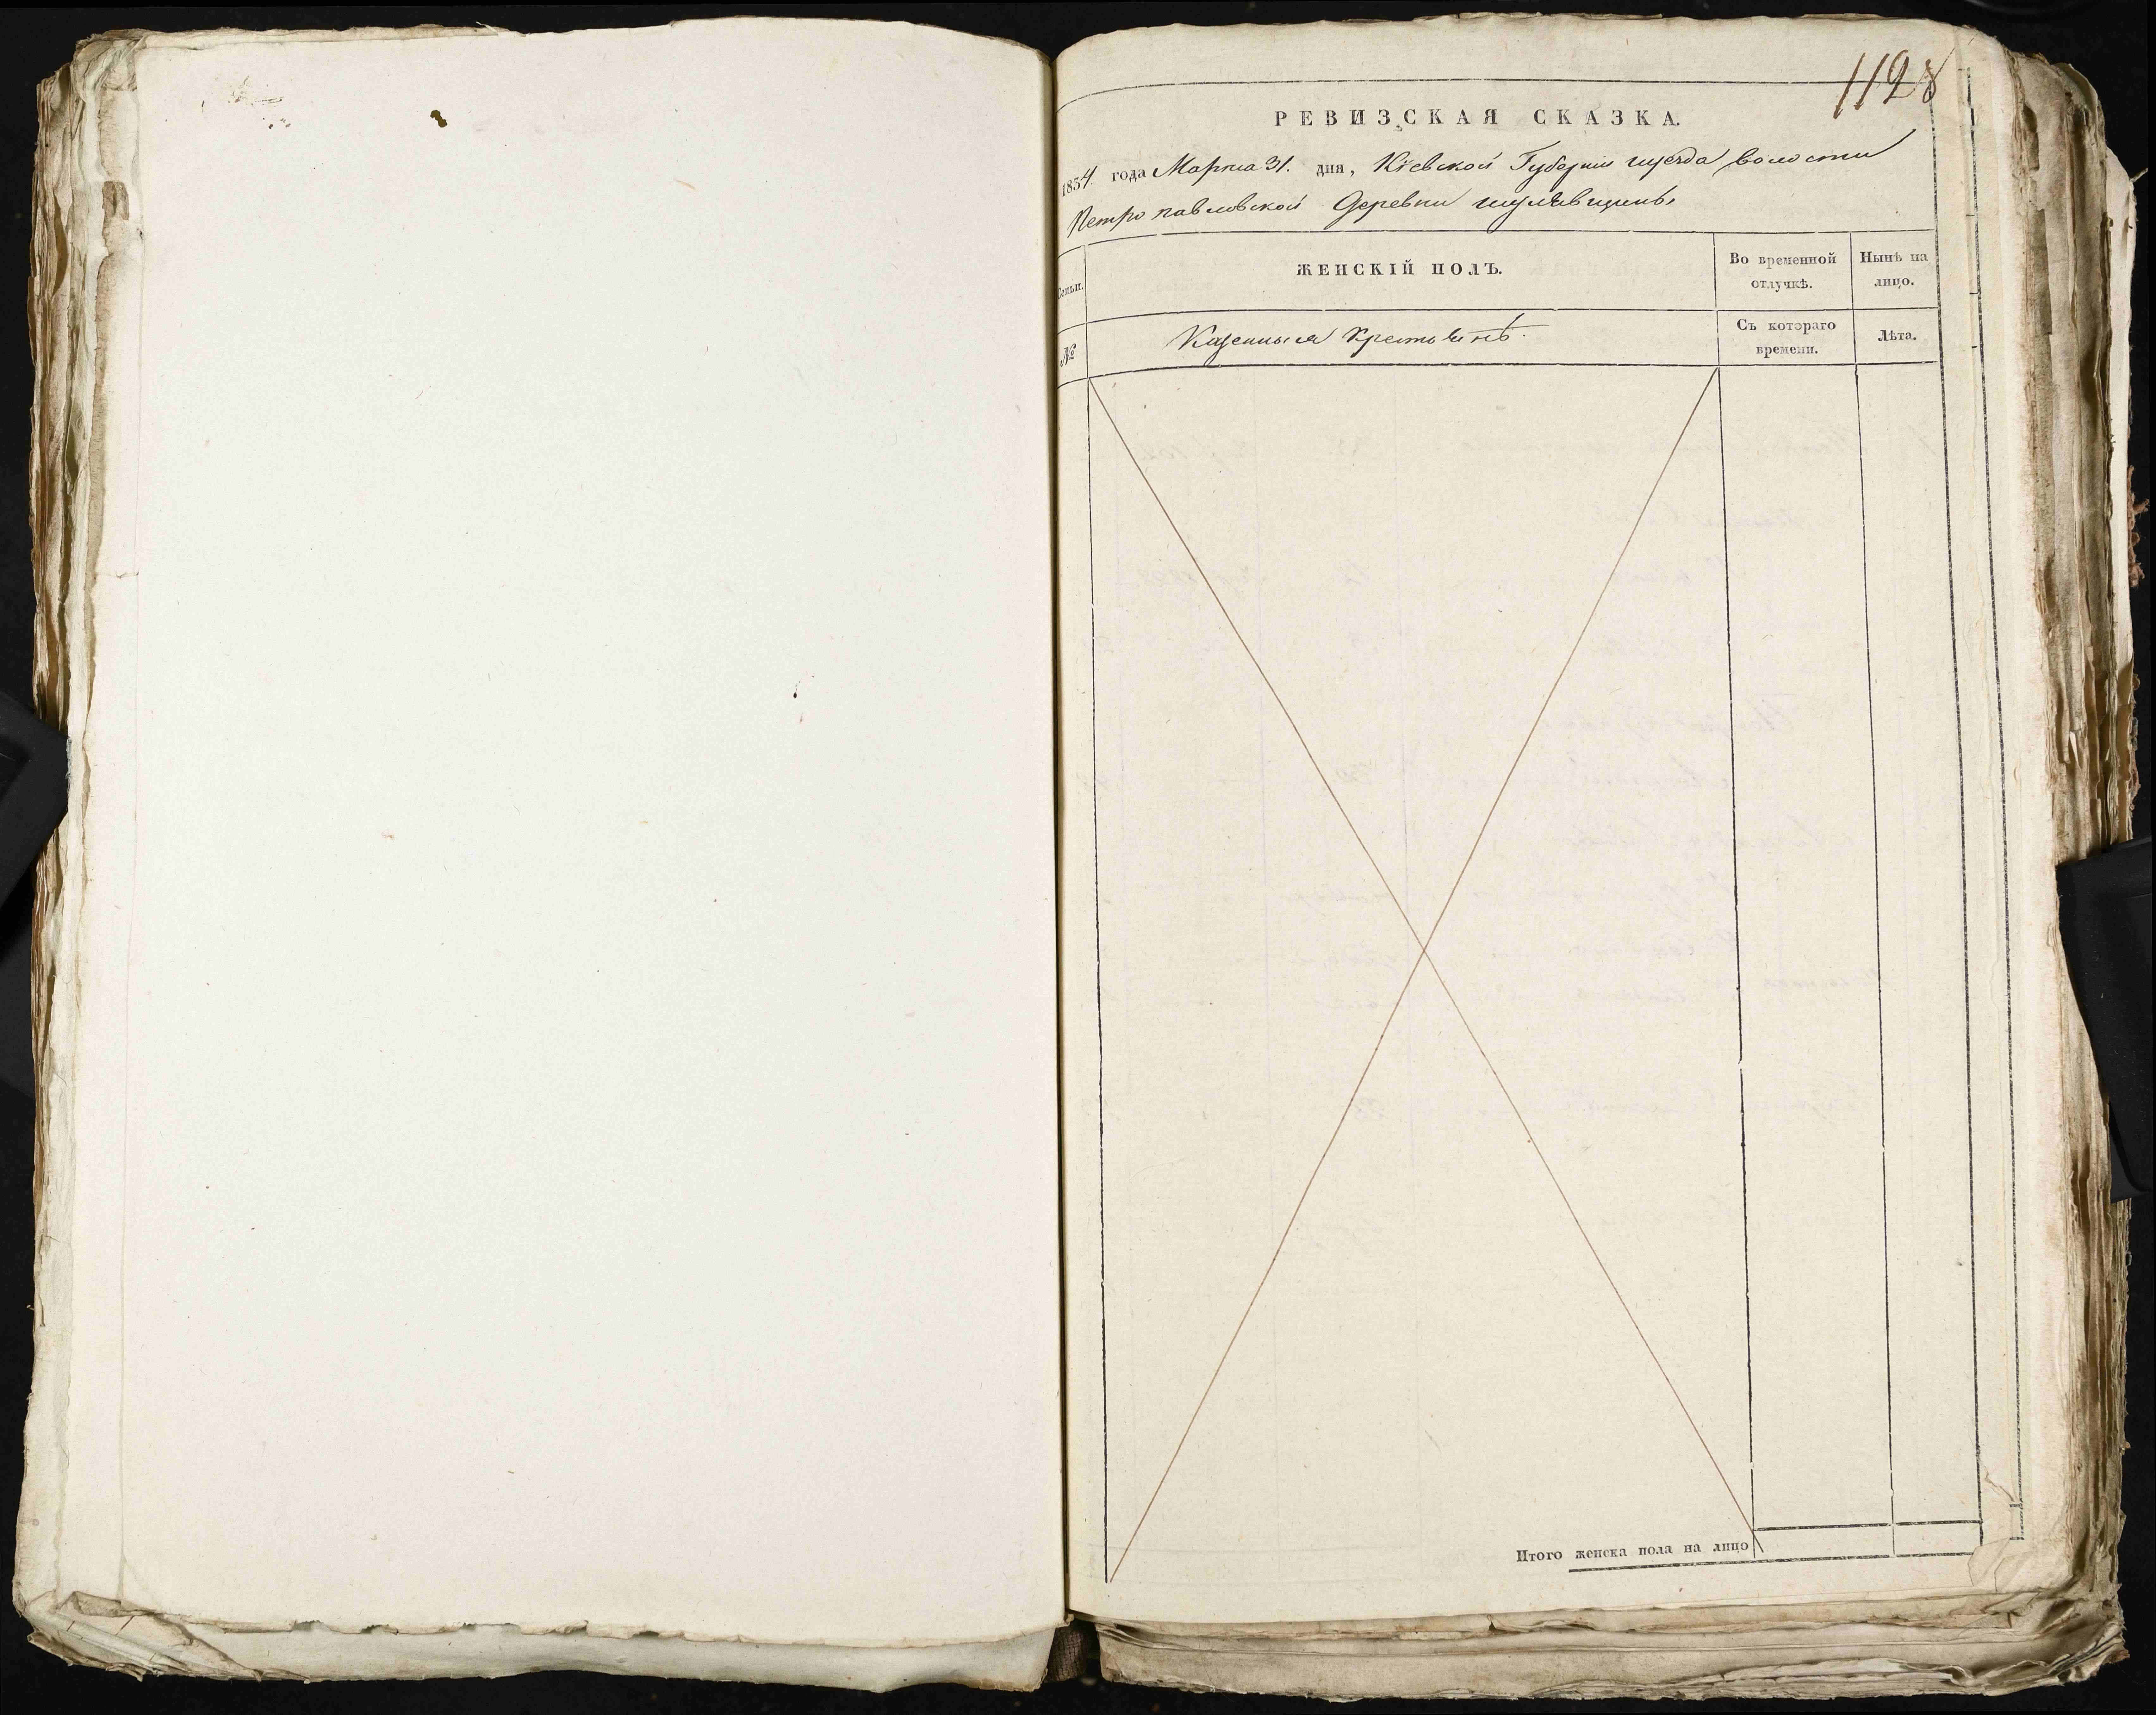 1128
РЕВИЗСКАЯ СКАЗКА.
1854 года Марта 31. дня, Кіевской Губерніи уѣзда волости
Петропавловской Деревни шулявщины
Семьи.
ЖЕНСКІЙ ПОЛЪ.
Во временной
отлучкѣ.
Нынѣ на
лицо.
№
Казенныя Крестьянѣ.
Съ котораго
времени.
Лѣта.
Итого женска пола на лицо